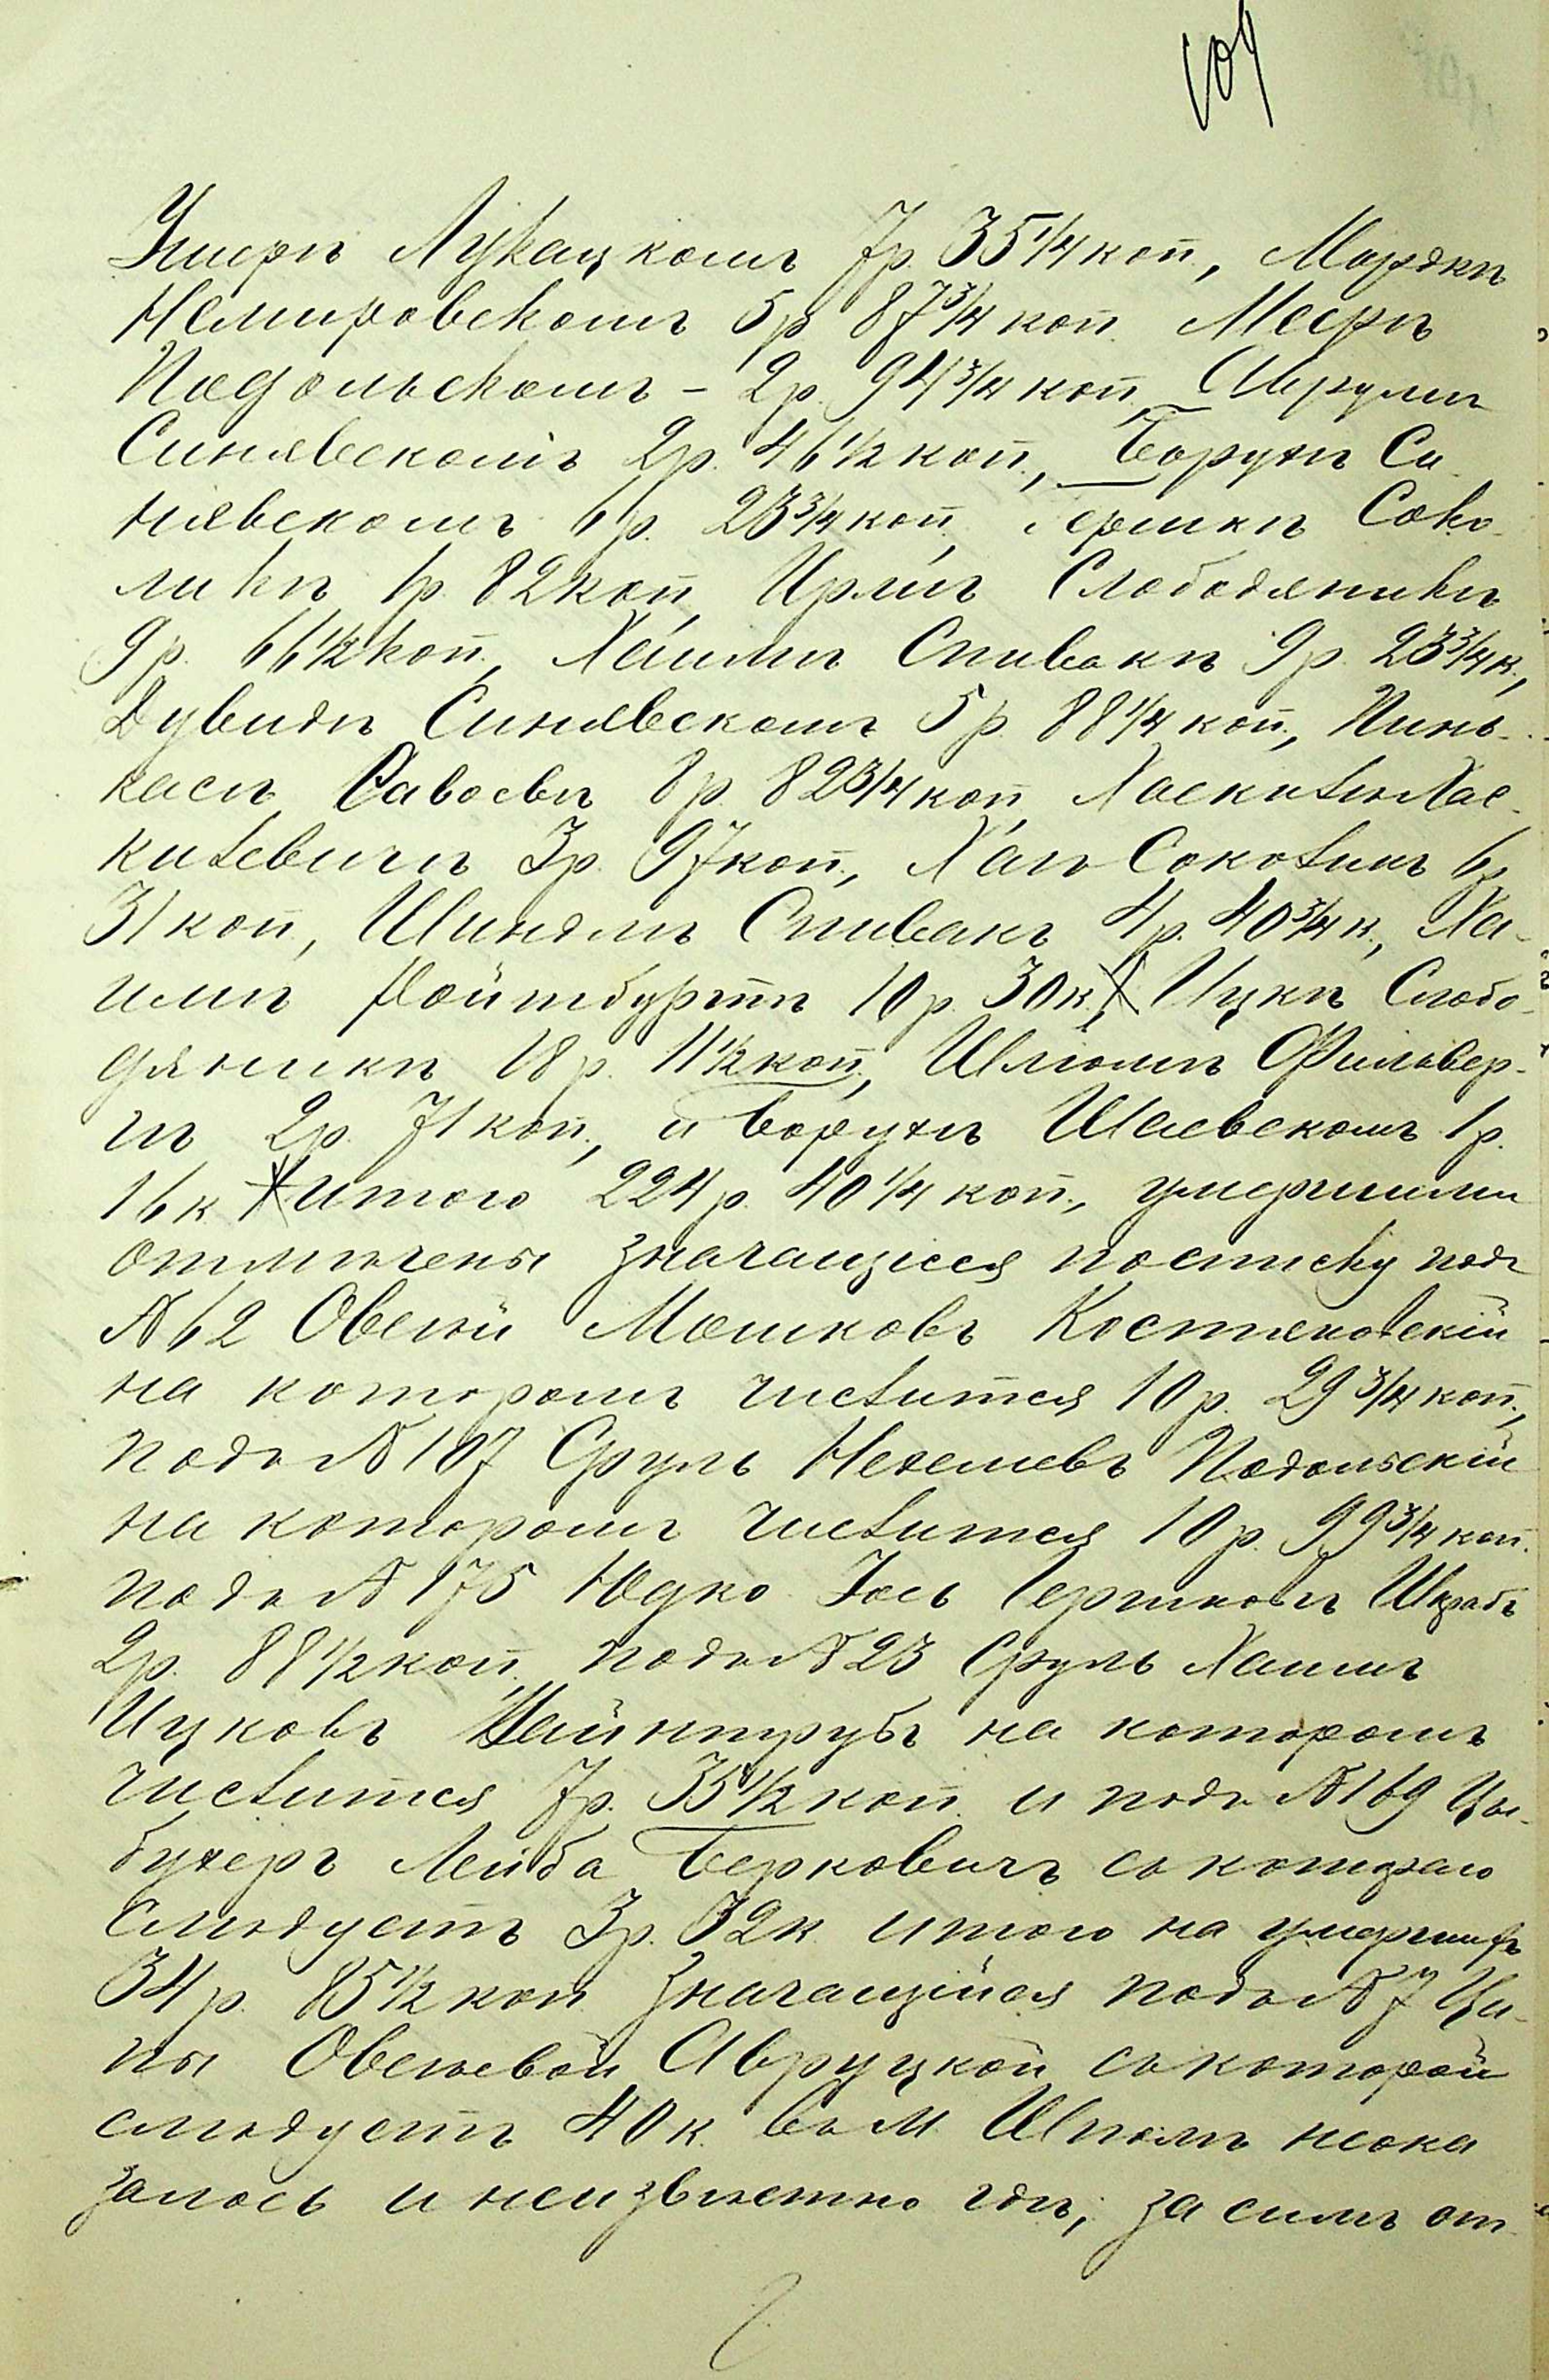 109
Ушерѣ Лукацкомъ 7р. 35¼ коп., Мордкѣ
Немировскомъ 5р 87¾ коп. Меерѣ
Подольскомъ - 2р. 94¾ коп, Аврумѣ
Синявскомъ 2р. 46½ коп., Борухѣ Си
нявскомъ 6р. 23¾ коп, Гершкѣ Соко
ликѣ 1р. 82 коп, Срулѣ Слободяникѣ
9р. 66½ коп., Хаимѣ Спивакѣ 9р. 23¾ к.,
Дувидѣ Синявскомъ 5р. 88¼ коп., Пинь-
касѣ 8р. 82¾ коп, Хаскилѣ Хас-
килевичѣ 3р. 97 коп., Соколикъ 6р
31 коп, Спивакъ 4р. 40¾ к., Ха-
имѣ Ройтбургѣ 10р. 30 к., Ицкѣ Слобо-
дяникѣ 18р. 11½ коп, Шлiомѣ Фильвер-
гѣ 2р. 71 коп., и Борухѣ Шаевскомъ 1р.
16 к итого 224р. 40¼ коп., умершими
отмѣчены значащiеся по списку подъ
№ 62 Овсей Мошковъ Костяновскiй
на которомъ числится 10р. 29¾ коп.,
подъ № 107 Сруль Нехемевъ Подольскiй
на которомъ числится 10р. 99¾ коп.
подъ № 175 Юдко Iось Гершковъ Шкрабъ
2р. 88½ коп. подъ № 23 Сруль Хаимъ
Ицковъ Вайнтрубъ на которомъ
числится 7р. 35½ коп. и подъ № 169 Цы-
бухеръ Лейба Берковичъ съ котораго
слѣдуетъ 3р. 32к итого на умершихъ
34р. 85½ коп значащейся подъ № 7 Ци-
пы Овсеевой Авруцкой съ которой
слѣдуетъ 40к. въ м. Шполѣ неока
залось и неизвѣстно гдѣ, за симъ от-